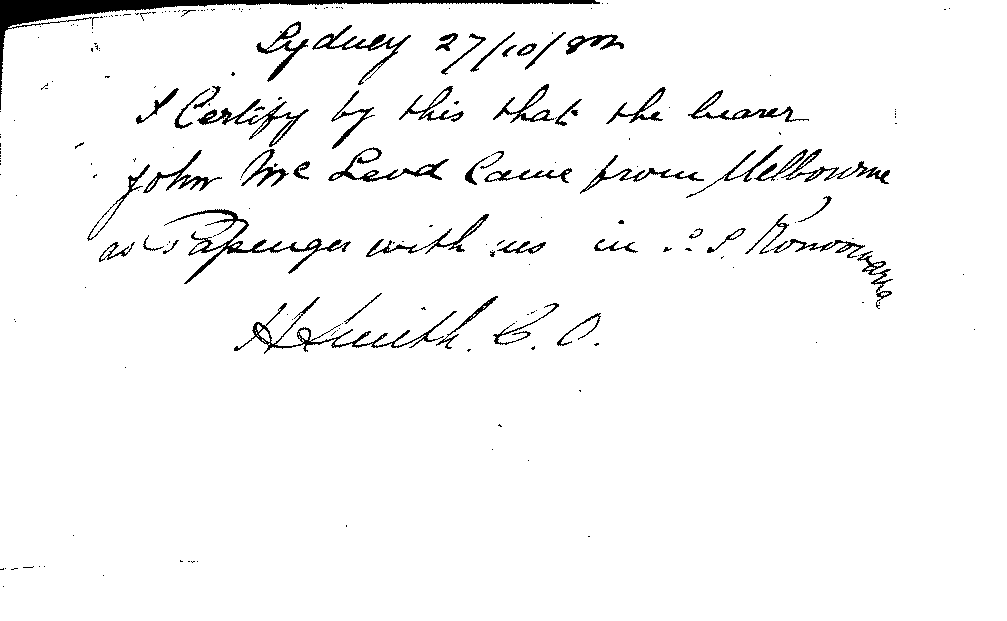 Sydney 27/10/
I Certify by this that the bearer
John Mc Leod Came from Melbourne
as Passenger with us in S. S. Konoowarra
H Smith. C. O.